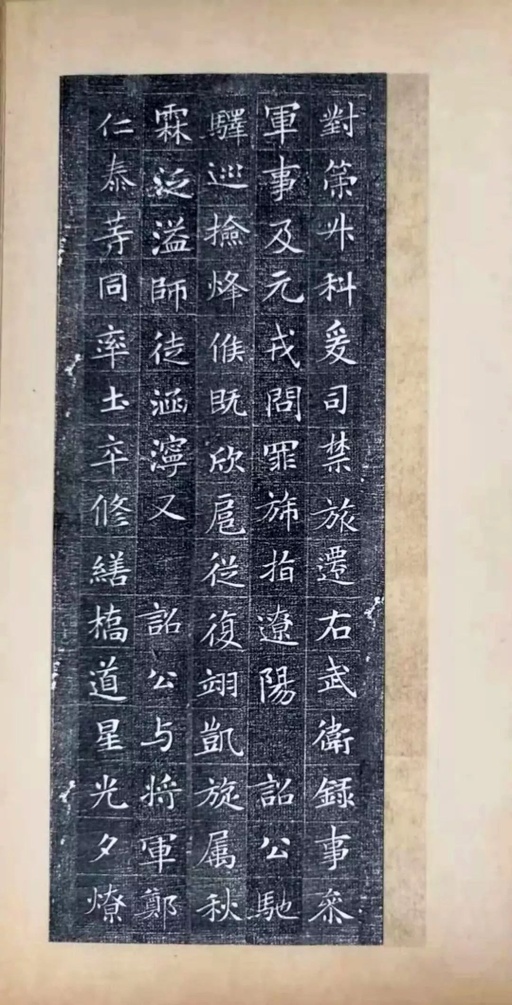 對策升科爰司禁旅遷右武衛録事叅
軍事及元戎問罪斾指遼陽 詔公馳
驛巡撿烽候既欣扈從復翊凱旋属秋
霖泛溢師徒涵濘又 詔公与将軍鄭
仁泰等同率士卒修繕橋道星光夕燎